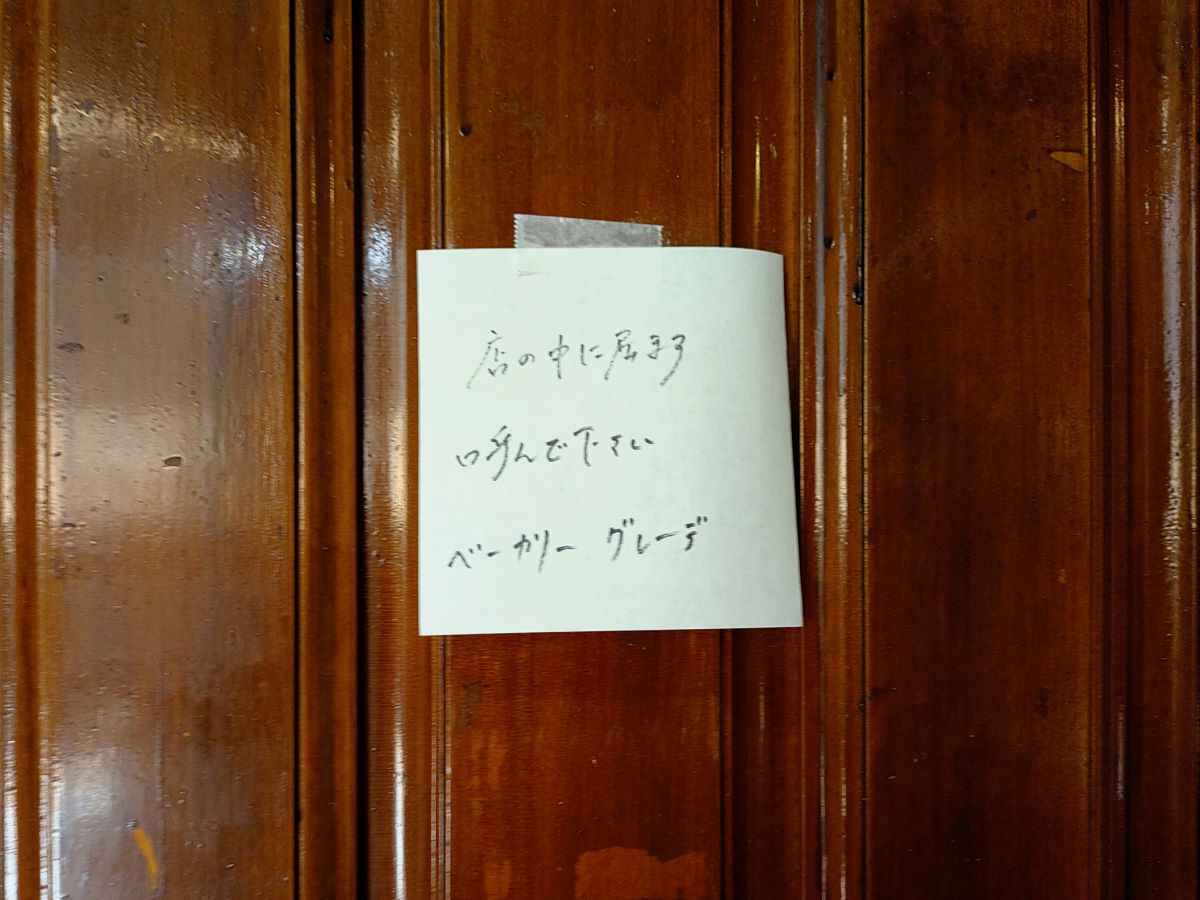 店の中に居ます
呼んで下さい
ベーカリー グレーデ